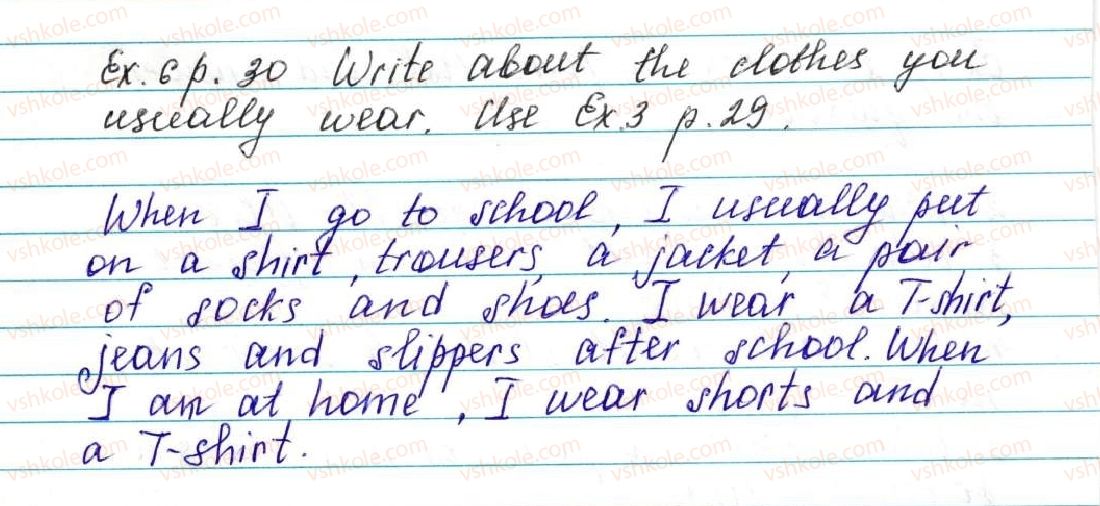 Ex. 6 p. 30 Write about the clothes you
usually wear. Use Ex.3 p. 29.
When I go to school, I usually put
on a shirt, trousers, a jacket, a pair
of socks and shoes. I wear a T-shirt,
jeans and slippers after school. When
I am at home, I wear shorts and
a T-shirt.